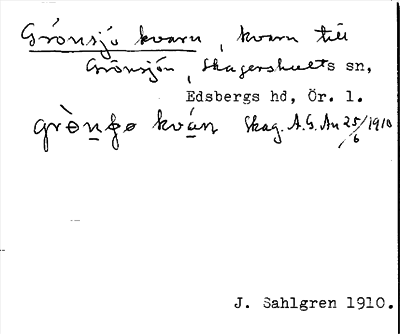 Grönsjö kvarn, kvarn till
Grönsjön, Skagershults sn,
Edsbergs hd, Ör. l.
kván Skag. A.G. Au 25/6 1910
J. Sahlgren 1910.